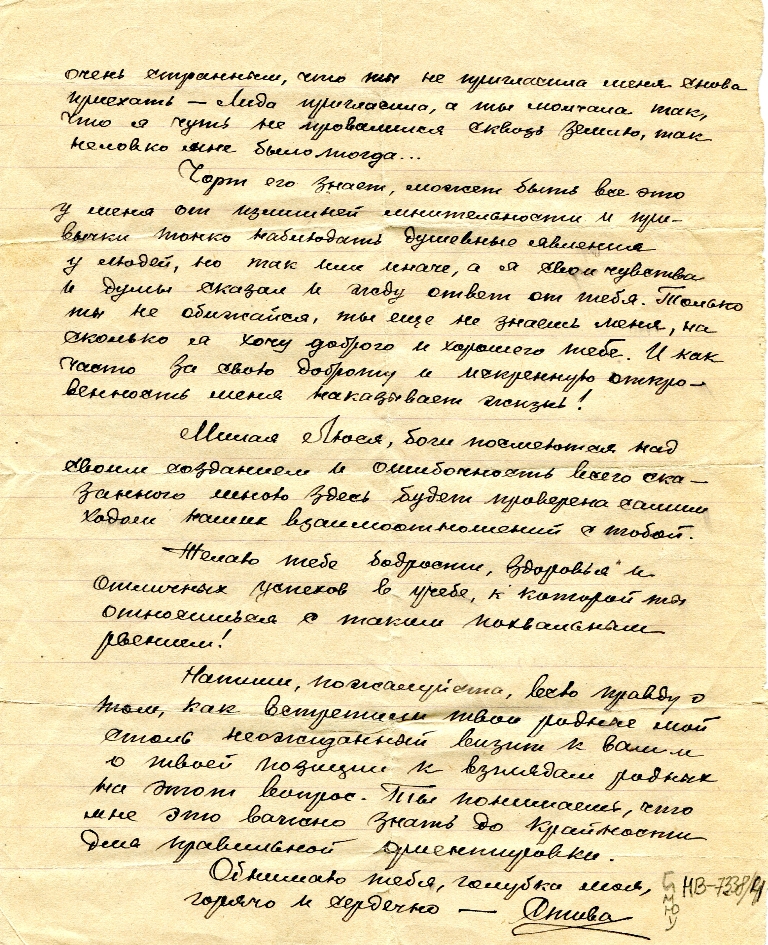 очень странным, что ты не пригласила меня снова
приехать – Лида пригласила, а ты молчала так,
что я чуть не провалился сквозь землю, так
неловко мне было тогда...
Чорт его знает, может быть все это
у меня от излишней мнительности и при-
вычки тонко наблюдать душевные явления
у людей, но так или иначе, а я свои чувства
и думы сказал и жду ответ от тебя. Только
ты не обижайся, ты еще не знаешь меня, на
сколько я хочу доброго и хорошего тебе. И как
часто за свою доброту и искреннюю откро-
венность меня наказывает жизнь!
Милая Люся, боги посмеются над
своим созданием и ошибочность всего ска-
занного мною здесь будет проверена самим
ходом наших взаимоотношений с тобой.
Желаю тебе бодрости, здоровья и
отличных успехов в учебе, к которой ты
относишься с таким похвальным
рвением!
Напиши, пожалуйста, всю правду о
том, как встретили твои родные мой
столь неожиданный визит к вам и
о твоей позиции к взглядам родных
на этот вопрос. Ты понимаешь, что
мне это важно знать до крайности
для правильной ориентировки.
Обнимаю тебя, голубка моя,
горячо и сердечно –
НВ-7338/4